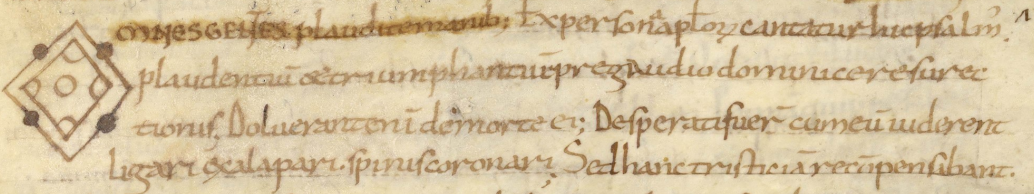 OMNES GENTES plaudite manib; Ex persona aplōꝝ cantatur hic psalm̄.
plaudentiū & triumphantiū pre gaudio dominice resurec
tionis. Doluerant enī de morte ei; Desperati fuer̄ cū eū uiderent
ligari & calapari. spinis coronari; Sed hanc tristiciā recūpensabant.